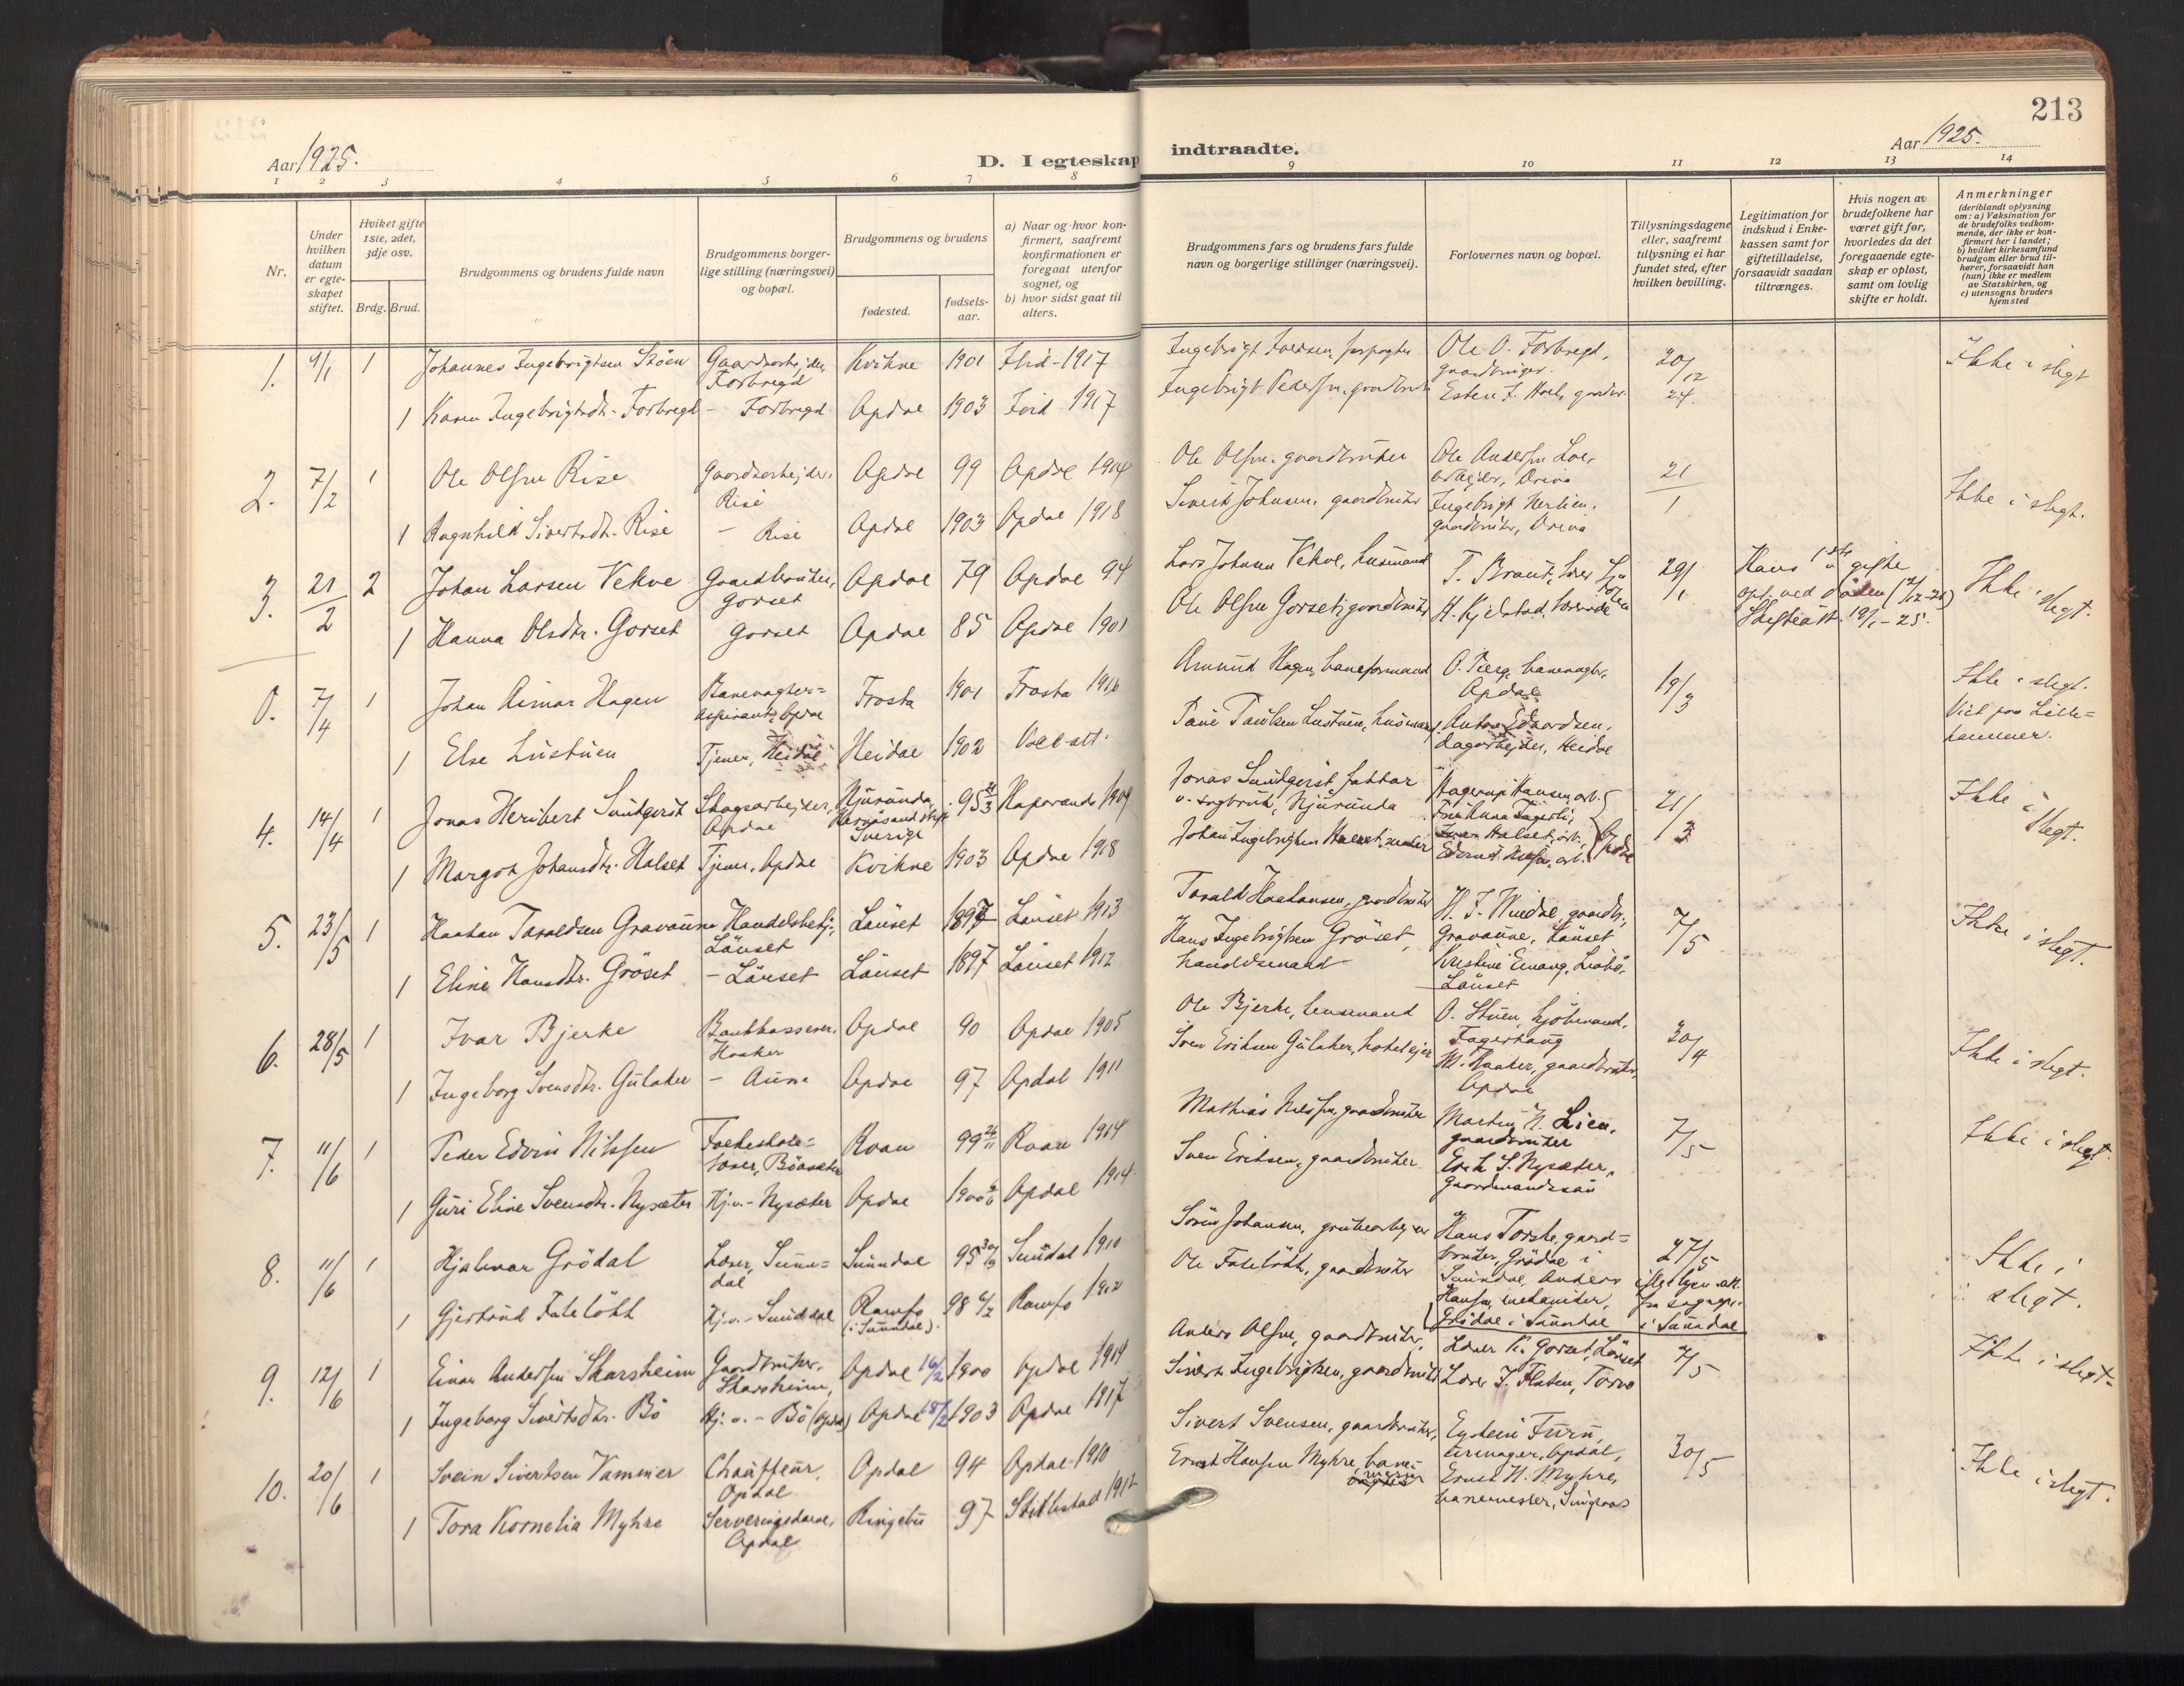 213
Aar 1925.
D. I egteskap
indtraadte.
Aar 1925.
1 2 3 4 5 6 7 8
9 10 11 12 13 14
Nr.
Under hvilken datum er egteskapet stiftet.
Hviket gifte 1ste, 2det, 3dje osv.
Brdg. Brud.
Brudgommens og brudens fulde navn
Brudgommens borgerlige stilling (næringsvei) og bopæl.
Brudgommens og brudens
fødested.
fødselsaar.
a) Naar og hvor konfirmert, saafremt konfirmationen er foregaat utenfor sognet, og
b) hvor sidst gaat til alters.
Brudgommens fars og brudens fars fulde navn og borgerlige stillinger (næringsvei).
Forlovernes navn og bopæl.
Tillysningsdagene eller, saafremt tillysning ei har fundet sted, efter hvilken bevilling.
Legitimation for indskud i Enkekassen samt for giftetilladelse, forsaavidt saadan tiltrænges.
Hvis nogen av brudefolkene har været gift før, hvorledes da det foregaaende egteskap er opløst, samt om lovlig skifte er holdt.
Anmerkninger
(deriblandt oplysning om: a) Vaksination for de brudefolks vedkommende, der ikke er konfirmert her i landet; b) hvilket kirkesamfund brudgom eller brud tilhører, forsaavidt han (hun) ikke er medlem av Statskirken, og c) utensogns bruders hjemsted
1. 4/1 1 Johannes Ingebrigtsen Gaardsarbejder, Forbregd Kvikne 1901 1917 Ingebrigt Ole O. Forbregd, gaardbruger. 20/12 Ikke i slegt
1 Karen Ingebrigtsdtr. Forbregd - Forbregd Opdal 1903 1917 Ingebrigt Pedersen, gaardbruker 24.
2. 7/2 1 Ole Olsen Rise Gaardsarbejder, Rise Opdal 99 Opdal 1914 Ole Olsen, gaardbruker Ole Andersen arbejder, Driva 21/1 Ikke i slegt.
1 Ragnhild Sivertsdtr. Rise - Rise Opdal 1903 Opdal 1918 Sivert Johnsen, gaardbruker Ingebrigt Nerlien, gaardbruker, Driva
3. 21/2 2 Johan Larsen Vekve Gaardbruker, Gorset Opdal 79 Opdal 94 Lars Johnsen Vekve, husmand 29/1 Hans 1ste gifte opl. ved døden Skifteatt. 19/1-25. Ikke i slegt.
1 Hanna Olsdtr. Gorset Gorset Opdal 85 Opdal 1901 Ole Olsen Gorset, gaardbruker H. Kjelstad,
0. 7/4 1 Johan Hagen Banevogter= aspirant, Opdal Frosta 1901 Frosta 1916 Amund Hagen, baneformand O. banevogter, Opdal 19/3 Ikke i slegt. Viet paa Lillehammer.
1 Else Lustuen Tjener, Heidal Heidal 1902 Lustuen, husmand Anton Edvardsen, dagarbejder, Heidal
4. 14/4 1 Jonas Heribert Sundqvist Skogsarbejder, Opdal Njurunda, Hernøsand Sverige 95 Haparanda 1909 Jonas Sundqvist Njurunda Hagerup Hansen, arb. 21/3 Ikke i slegt.
1 Margot Johansdtr. Halset Tjener, Opdal Kvikne 1903 Opdal 1918 Johan Ingebrigtsen Halset, Opdal
5. 23/5 1 Haakan Taraldsen Gravaune Handelsbetj., Lønset Lønset 1897 Lønset 1913 Tarald Haakansen, gaardbruker H. J. gaardbr., Gravaune, Lønset 7/5 Ikke i slegt.
1 Eline Hansdtr. Grøset - Lønset Lønset 1897 Lønset 1912 Hans Ingebrigtsen Grøset, handelsmand Kristine Lønset
6. 28/5 1 Ivar Bjerke Bankkasserer, Haaker Opdal 90 Opdal 1905 Ole Bjerke, lensmand O. Stuen, kjøbmand, Fagerhaug 30/4 Ikke i slegt.
1 Ingeborg Svensdtr. Gulaker - Aune Opdal 97 Opdal 1911 Sven Eriksen Gulaker, hotelejer M. Haaker, gaardbruker, Opdal
7. 11/6 1 Peder Edvin Nilssen Folkeskole= lærer, Roan 99 26/11 Roan 1914 Mathias Nilssen, gaardbruker Morten N. Lien, gaardbruker 7/5 Ikke i slegt.
1 Guri Eline Svensdtr. Nysæter Hj.v. - Nysæter Opdal 1900 Opdal 1914 Sven Eriksen, gaardbruker Erik S. Nysæter, gaardmandssøn
8. 11/6 1 Hjalmar Grødal Lærer, Sunn= dal Sunndal 95 Sundal 1910 Søren Johansen, grubearbejder Hans Torske, gaard= bruker, Grødal i Sunndal, Anders Hansen, mekaniker, Grødal i Sunndal 27/5 i Sunndal Ikke i slegt.
1 Gjertrud Faleløkk Hj.v. - Sunddal (i Sunndal). 98 6/2 1912 Ole Faleløkk, gaardbruker
9. 12/6 1 Einar Andersen Skarsheim Gaardbruker, Skarsheim, Opdal 16/2 1900 Opdal 1914 Anders Olsen, gaardbruker, Lærer K. Gorset, Lønset 7/5 Ikke i slegt.
1 Ingeborg Sivertsdtr. Bø Hj.v. - Bø (Opdal) Opdal 18/2 1903 Opdal 1917 Sivert Ingebrigtsen, gaardbruker Lærer J. Flaten, Torve
10. 20/6 1 Svein Sivertsen Vammer Chauffeur, Opdal Opdal 94 Opdal 1910 Sivert Svensen, gaardbruker, Eystein Furu, urmager, Opdal, 30/5 Ikke i slegt.
1 Tora Kornelia Myhre Serveringsdame, Opdal Ringebu 97 1912 Ernst Hansen Myhre, bane= mester Ernst H. Myhre, banemester,